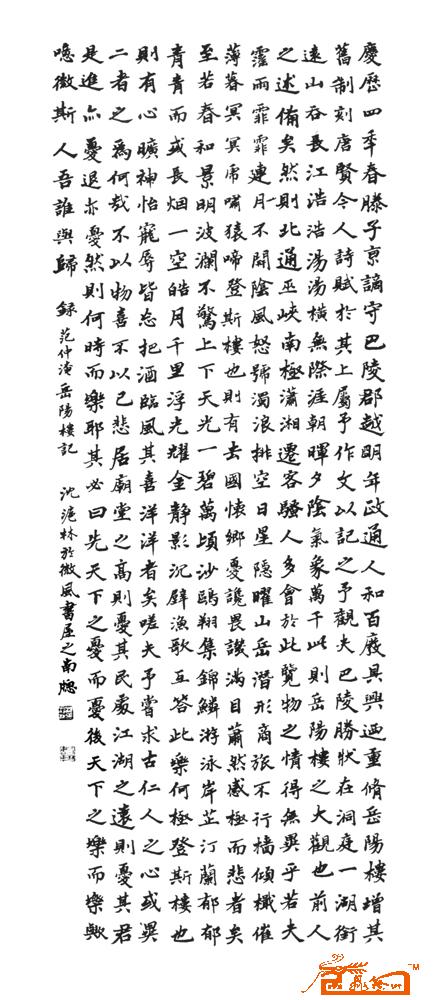 慶歷四年春滕子京謫守巴陵郡越明年政通人和百廢具興迺重脩岳陽樓增其
舊制刻唐賢今人詩賦於其上屬予作文以記之予觀夫巴陵勝狀在洞庭一湖銜
遠山吞長江浩浩湯湯橫無際涯朝暉夕陰氣象萬千此則岳陽樓之大觀也前人
之述備矣然則北通巫峽南極瀟湘遷客騷人多會於此覽物之情得無異乎若夫
霪雨霏霏連月不開陰風怒號濁浪排空日星隱曜山岳潛形商旅不行檣傾檝催
薄暮冥冥虎嘯猿啼登斯樓也則有去國懷鄉憂讒畏譏滿目蕭然感極而悲者矣
至若春和景明波瀾不驚上下天光一碧萬頃沙鷗翔集錦鱗游泳岸芷汀蘭郁郁
青青而或長烟一空皓月千里浮光耀金靜影沉璧漁歌互答此樂何極登斯樓也
則有心曠神怡寵辱皆忘把酒臨風其喜洋洋者矣嗟夫予嘗求古仁人之心或異
二者之為何哉不以物喜不以己悲居廟堂之高則憂其民處江湖之遠則憂其君
是進亦憂退亦憂然則何時而樂耶其必曰先天下之憂而憂後天下之樂而樂歟
噫微斯人吾誰與歸 錄范仲淹岳陽樓記 沈滬林於微風書屋之南牕